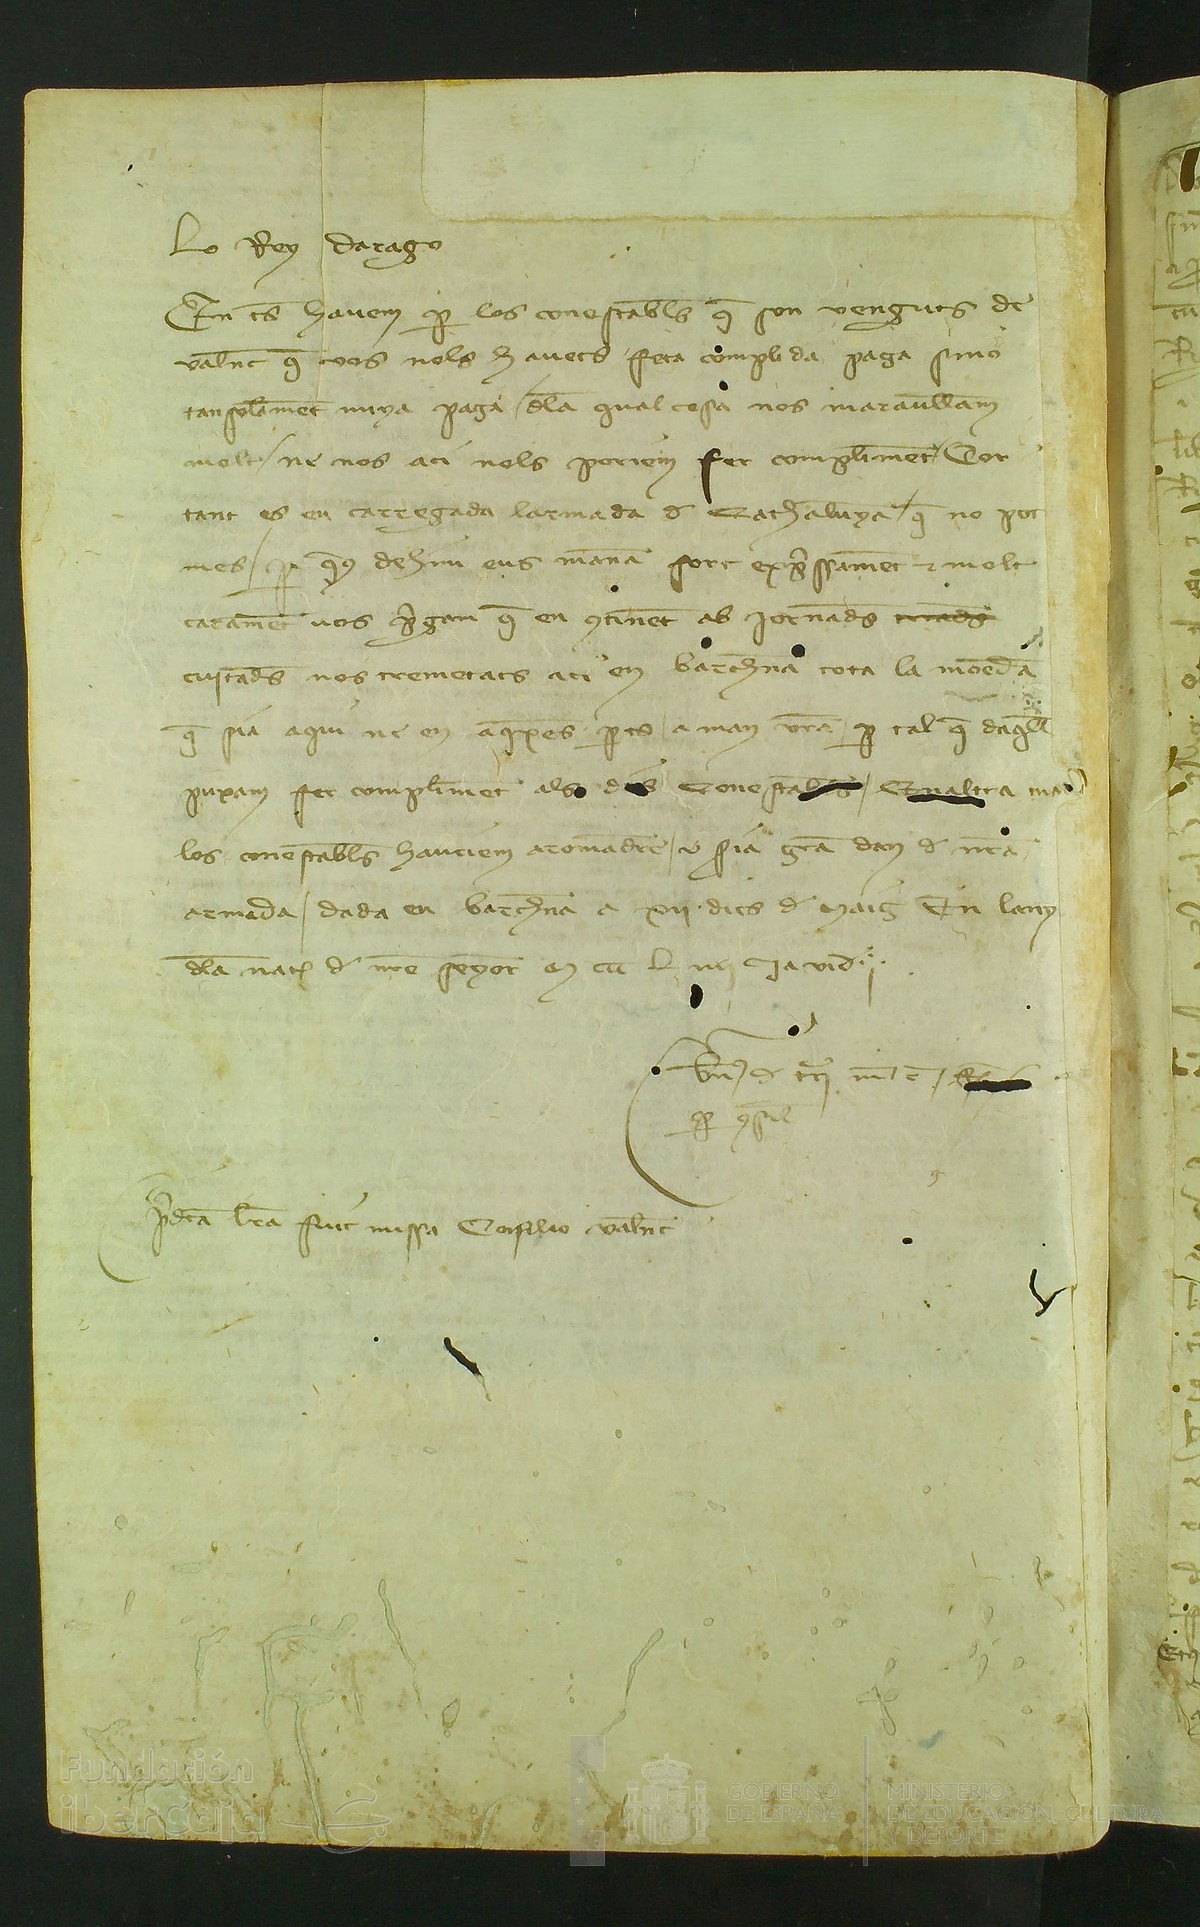 Lo Rey darago
En ts havem p los conestabls q son venguts de
valnc q vos nols havets feta complida paga sino
tansolament miya paga / dla qual cosa nos maravellam
molt / ne nos aci nols poriem fer compliment / Cor
tant es en carregada larmada d Cathalunya / q no pot
mes / p q dehim eus manam fort expssament e molt
carament vos pgam q en continent ab jornads
cuytads nos trametats aci en barchna tota la moneda
q sia aqui ne en aqxes pts a man vra p tal q daqll
puxam fer compliment als dts Conestabls / En altra ma
los conestabls hauriem a romadre / e sia gra dan d nra
armada / dada en barchna a xvii dies d Maig En lany
dla nat d nre senyor M CCC L
p consil
pdca lra fuit missa Consilio valnc
Fundación
iberCaja
GOBIERNO
DE ESPAÑA
MINISTERIO
DE EDUCACIÓN, CULTURA
Y DEPORTE